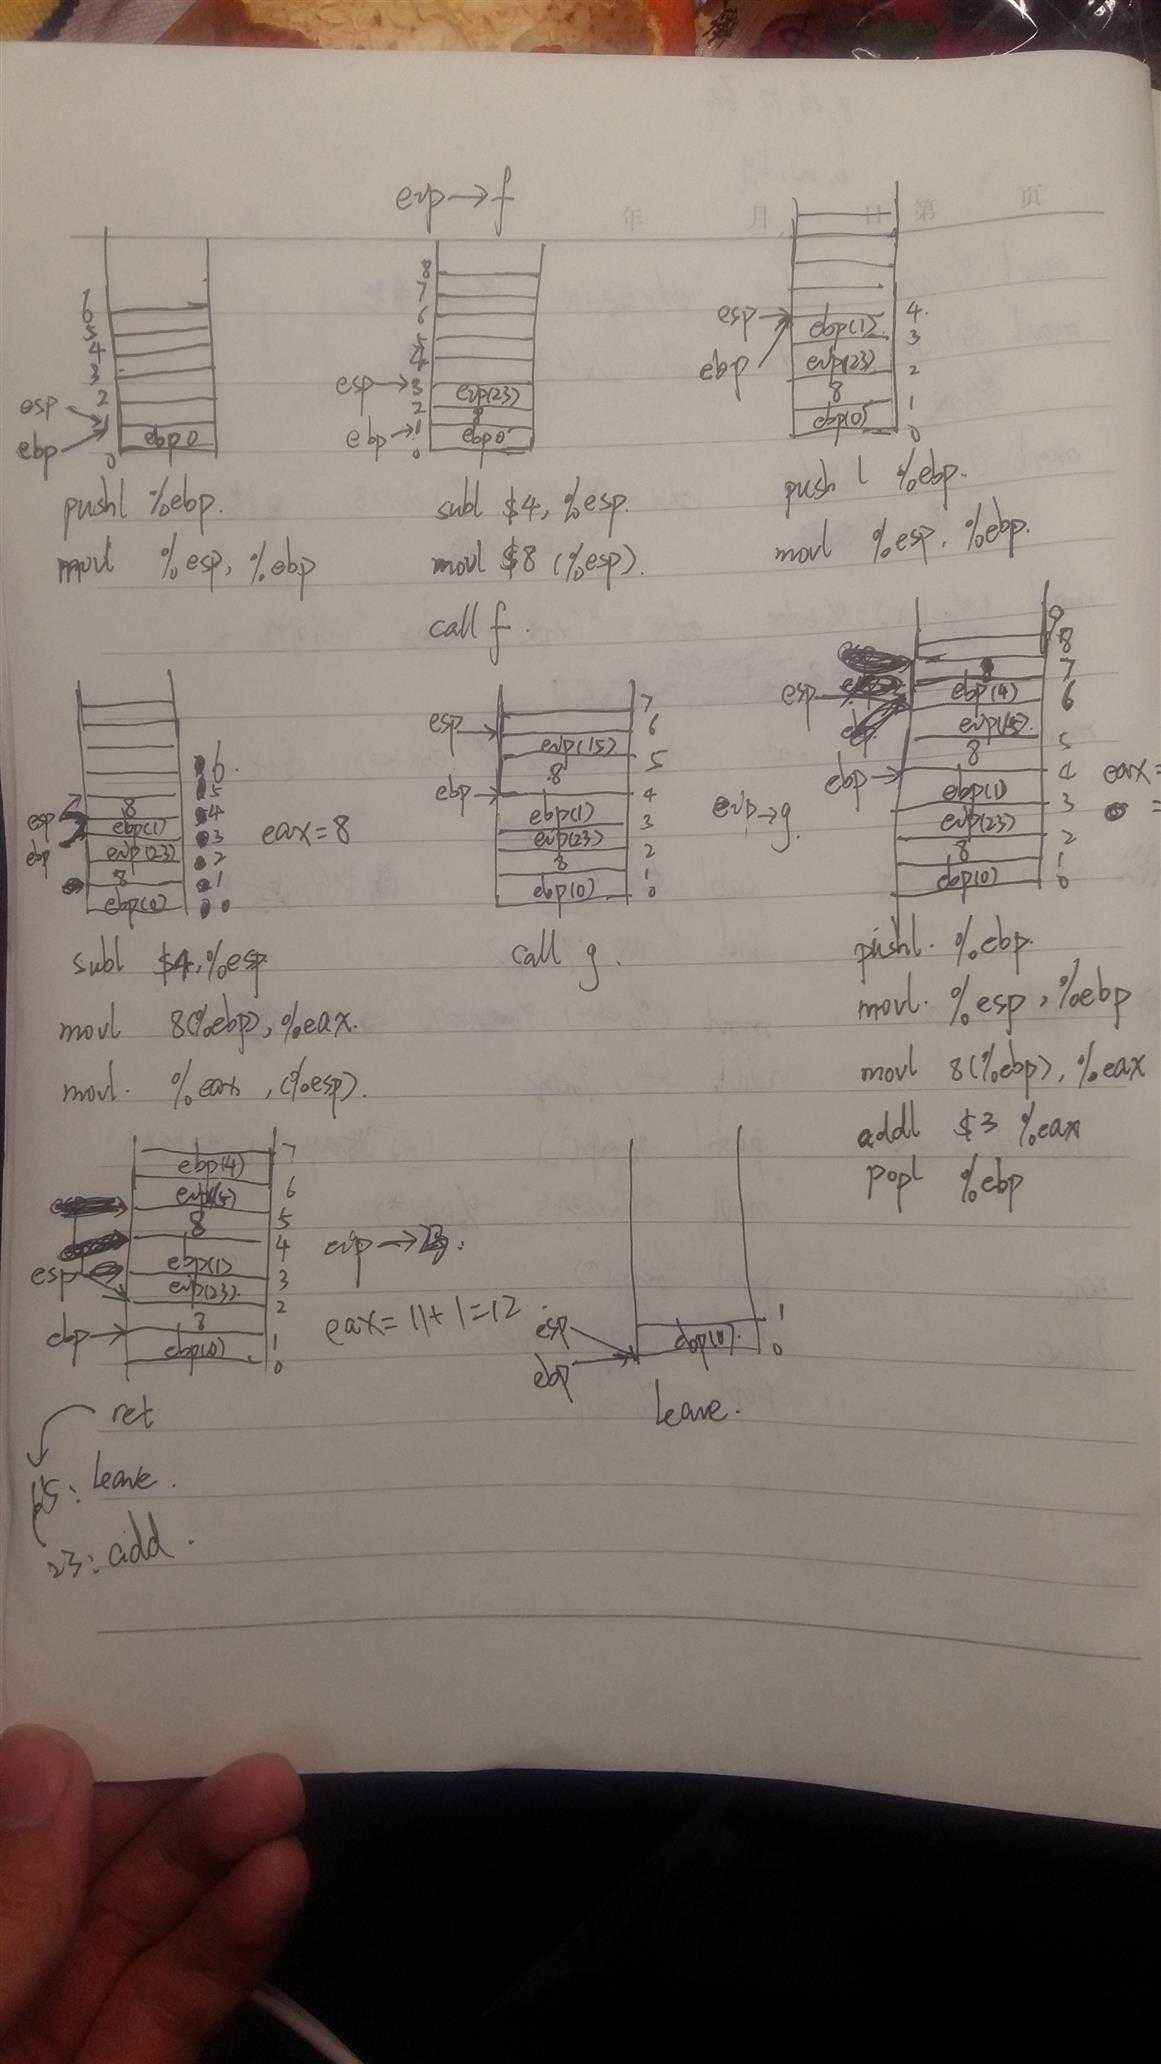 eip→f
年 月 日 第 页
6
5
4
3
2
1
0
esp
ebp
ebp 0
pushl %ebp.
movl %esp, %ebp
8
7
6
5
4
3
2
1
0
esp
ebp
eip(23)
8
ebp 0
subl $4, %esp.
movl $8 (%esp).
call f.
esp
ebp
ebp(1)
eip(23)
8
ebp(0)
4.
3
2
1
0
pushl %ebp.
movl %esp. %ebp.
esp
ebp
8
ebp(1)
eip(23)
8
ebp(0)
6.
5
4
3
2
1
0
eax=8
subl $4,%esp
movl 8(%ebp), %eax.
movl. %eax, (%esp).
esp
ebp
eip(15)
8
ebp(1)
eip(23)
8
ebp(0)
7
6
5
4
3
2
1
0
call g.
eip→g.
esp
ebp
ebp(4)
eip(15)
8
ebp(1)
eip(23)
8
ebp(0)
9
8
7
6
5
4
3
2
1
0
eax=
=
pushl. %ebp.
movl. %esp, %ebp
movl 8(%ebp), %eax
addl $3 %eax
popl %ebp
esp
ebp
ebp(4)
eip(15)
8
ebp(1)
eip(23)
8
ebp(0)
7
6
5
4
3
2
1
0
eip→
eax=11+1=12
ret
15: leave.
23: add.
esp
ebp
ebp(0).
1
0
leave.